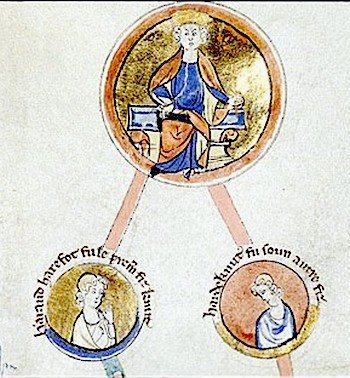 haraud harefot fu le prem fiz knut
hardeknut fu soun autre fiz